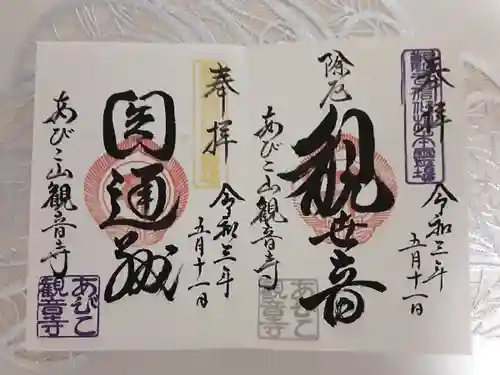 奉拝
令和三年
五月十一日
除厄
観世音
あびこ山観音寺
あびこ
観音寺
奉拝
令和三年
五月十一日
円通殿
あびこ山観音寺
あびこ
観音寺